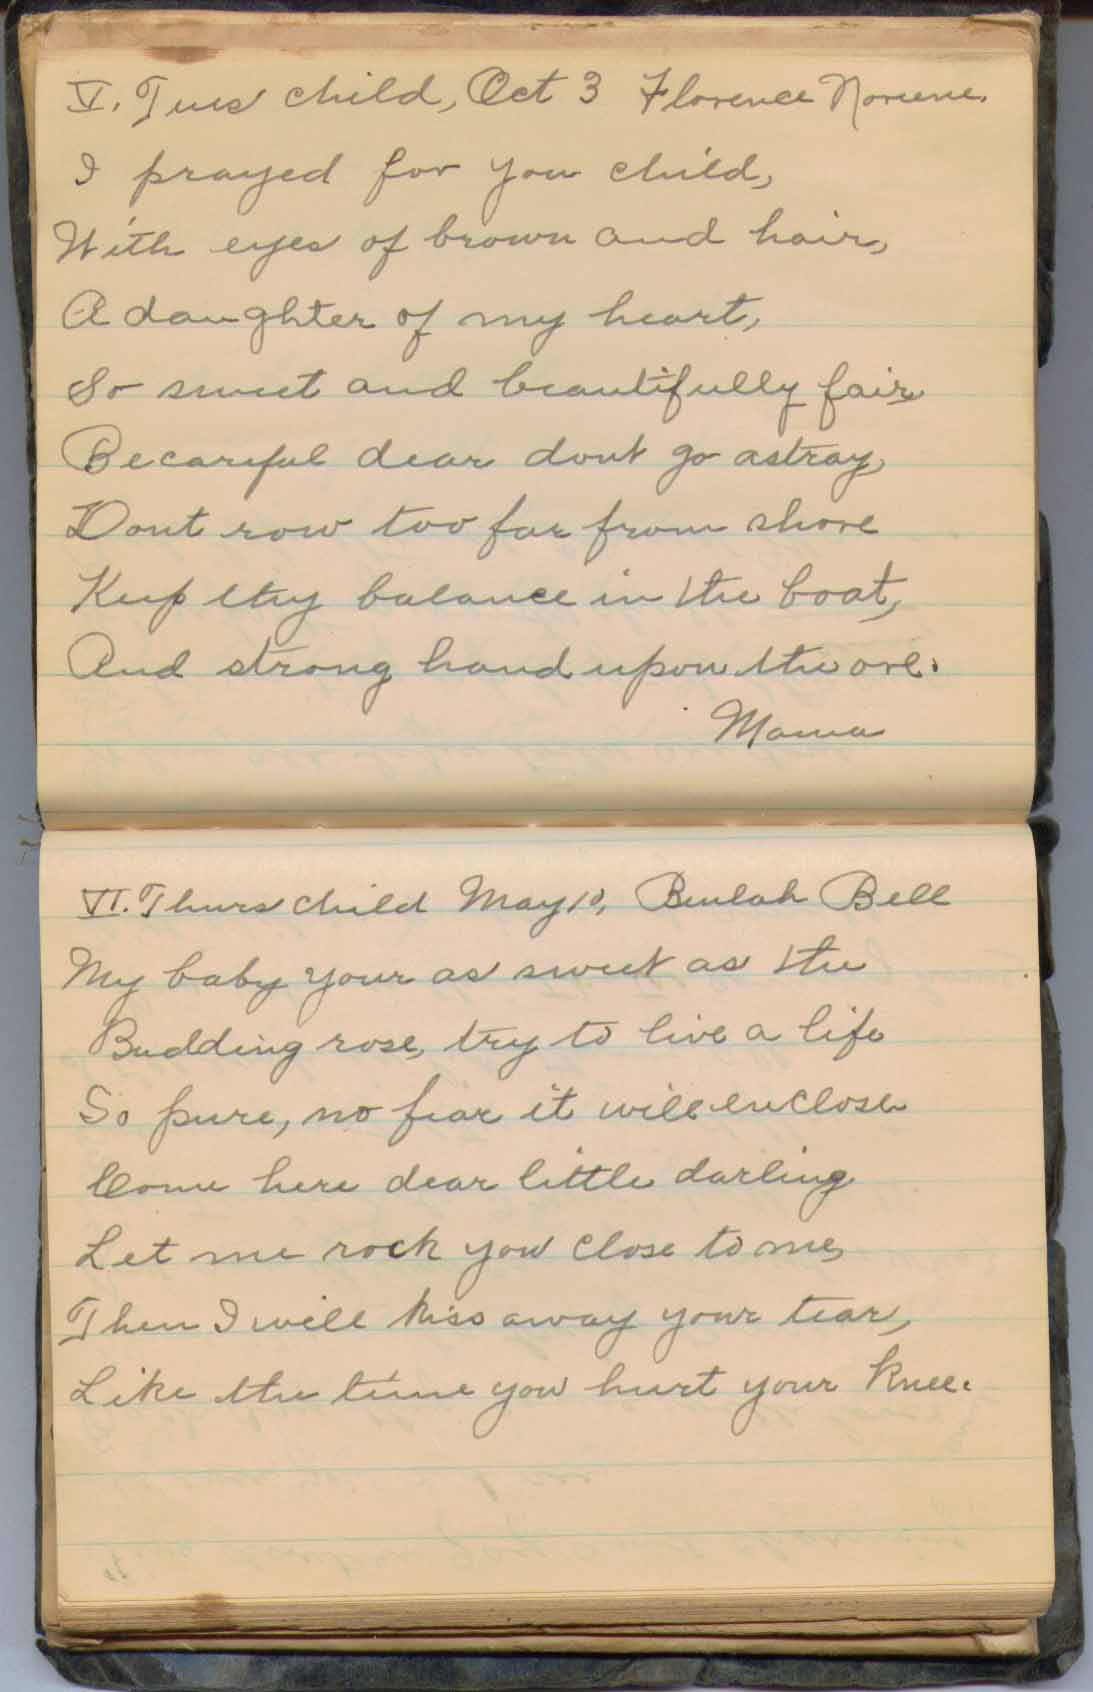 V. Tues child, Oct 3 Florence Noriene.
I prayed for you child,
With eyes of brown and hair,
A daughter of my heart,
So sweet and beautifully fair
Becareful dear dont go astray,
Dont row too far from shore
Keep thy balance in the boat,
And strong hand upon the ore.
Mama
VI. Thurs child May 10, Beulah Bell
My baby your as sweet as the
Budding rose, try to live a life
So pure, no fear it will enclose
Come here dear little darling
Let me rock you close to me,
Then I will kiss away your tear,
Like the time you hurt your knee.